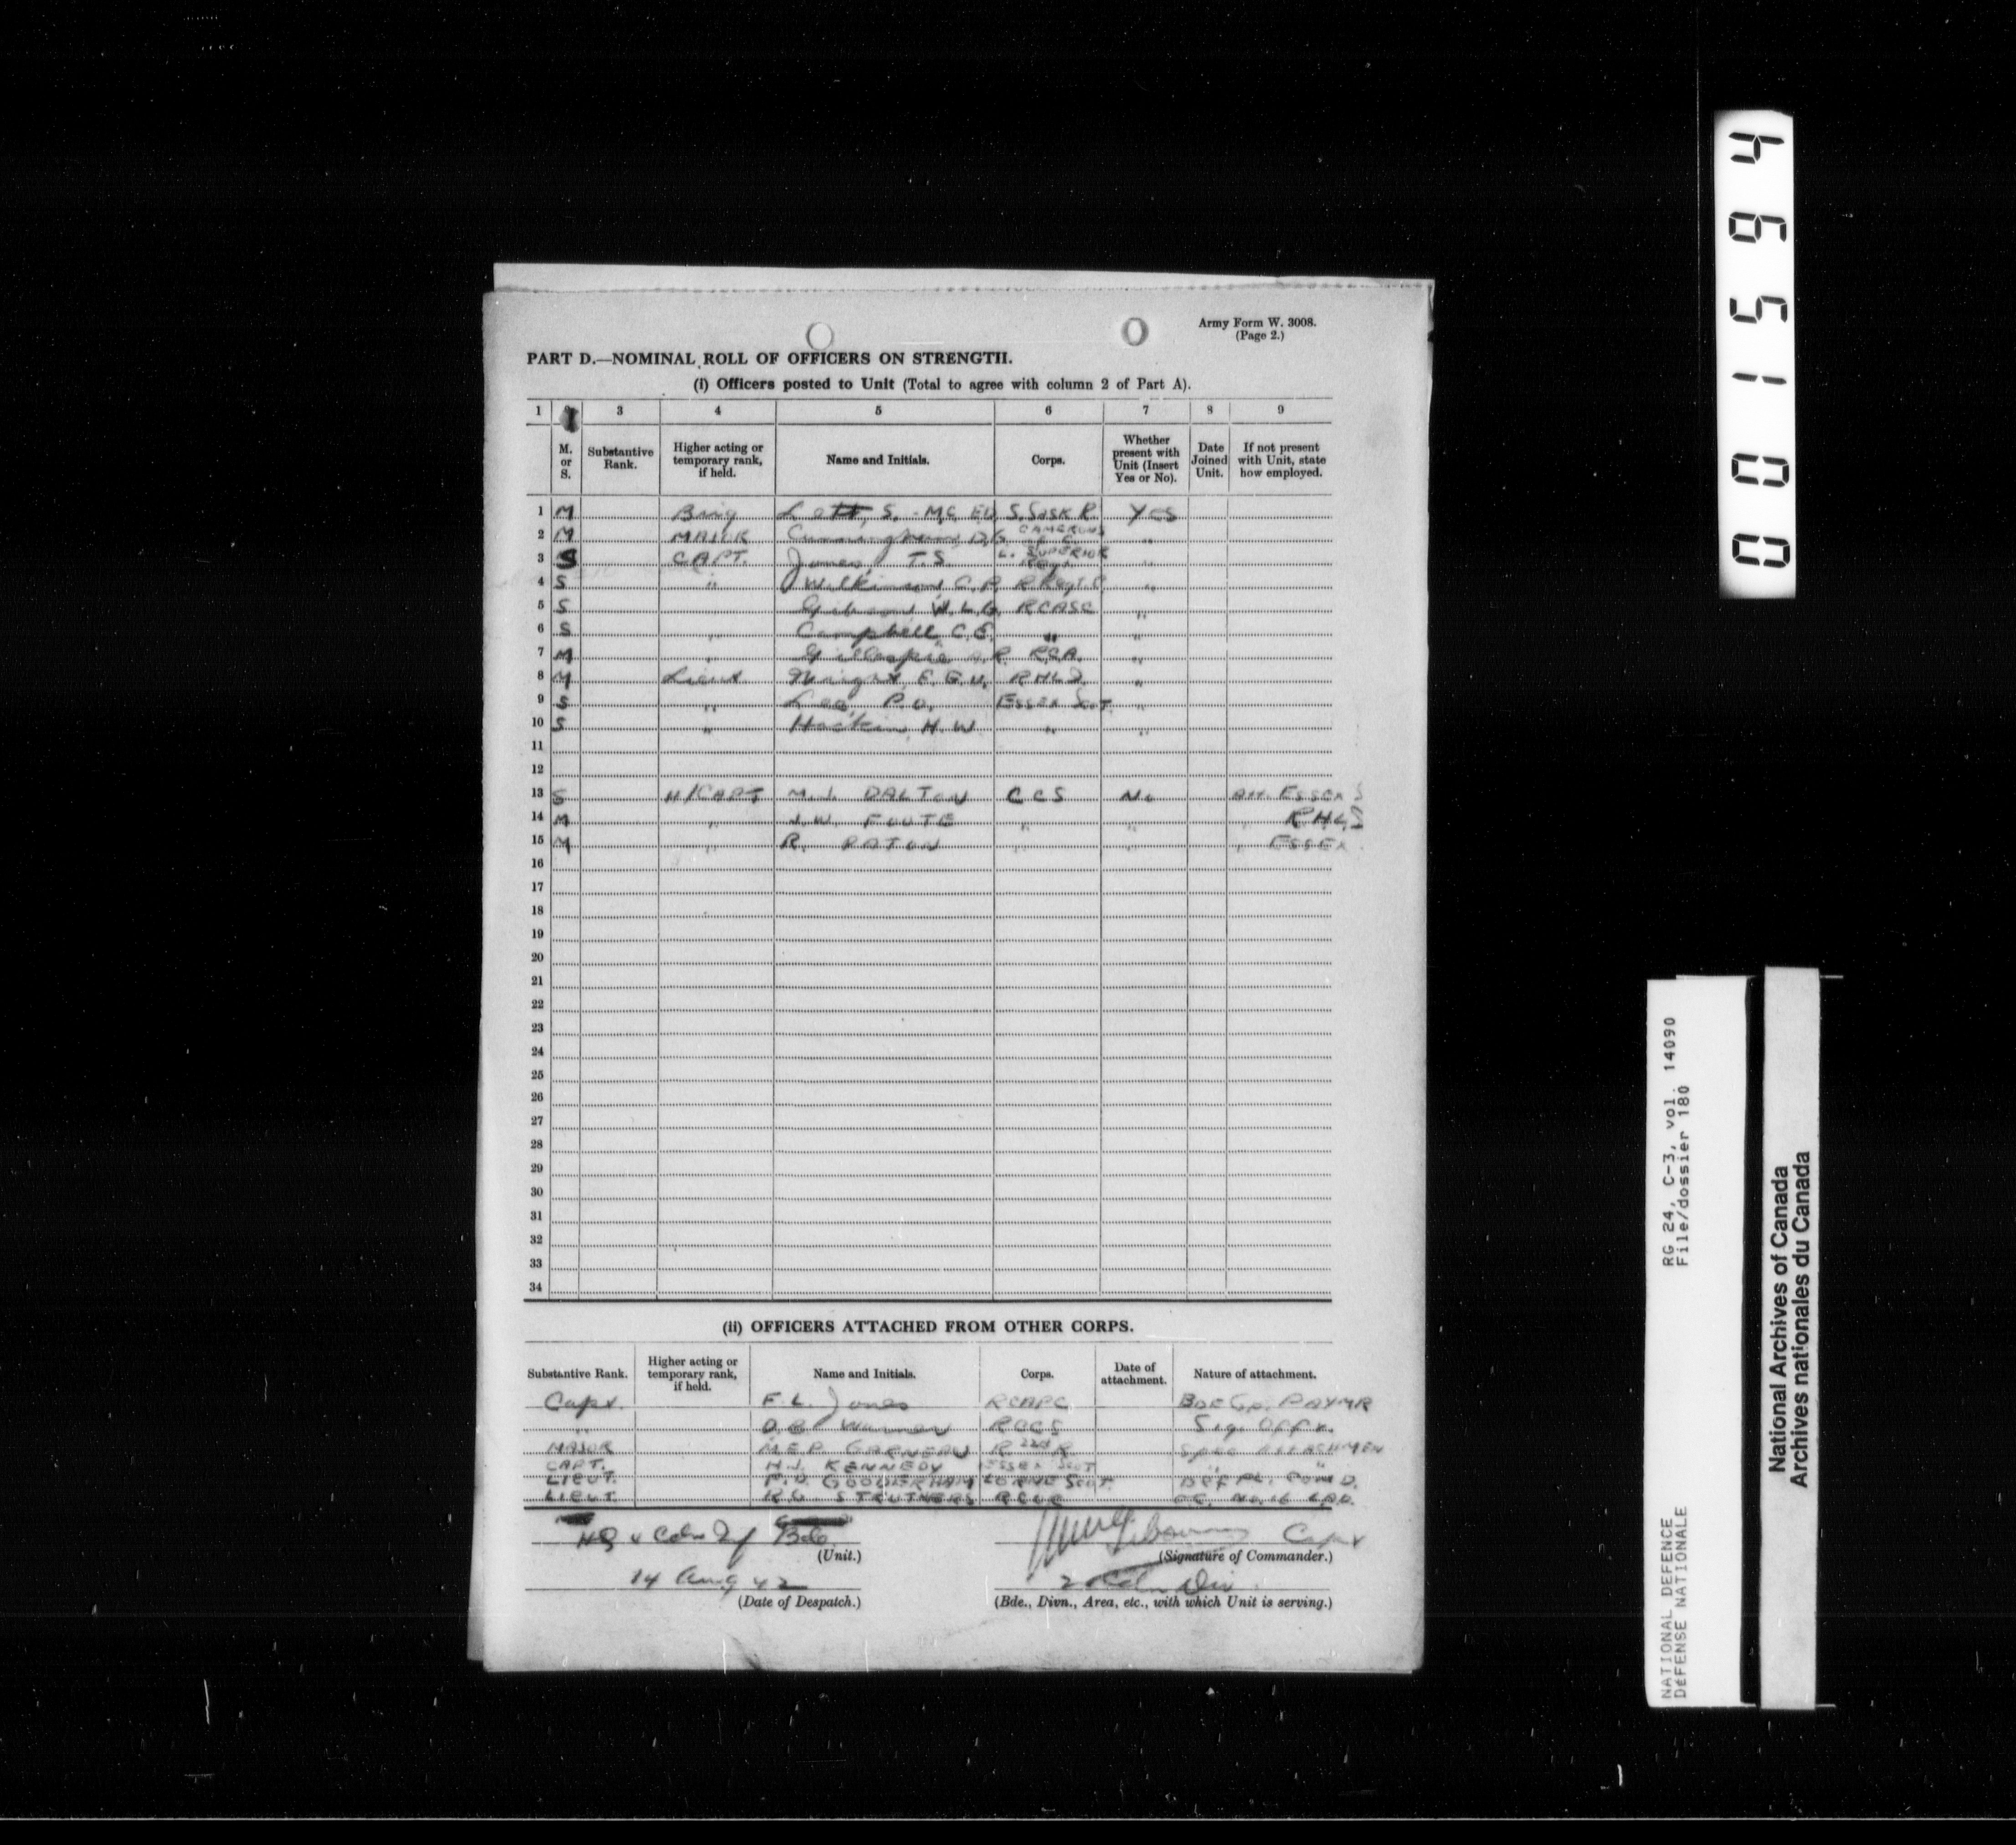 Army Form W. 3008.
(Page 2.)
PART D.—NOMINAL ROLL OF OFFICERS ON STRENGTH.
(i) Officers posted to Unit (Total to agree with column 2 of Part A).
1 3 4 5 6 7 8 9
M. or S. Substantive Rank. Higher acting or temporary rank, if held. Name and Initials. Corps. Whether present with Unit (Insert Yes or No). Date Joined Unit. If not present with Unit, state how employed.
1 M Brig Lett, S. MC ED S. Sask R. Yes
2 M MAJOR Cunningham, D.G. CAMERONS of C. "
3 S CAPT. Jones, T.S. L. SUPERIOR Regt "
4 S " Wilkinson, C.P. R Regt C "
5 S Gibson, W.L.G. RCASC "
6 S " Campbell, C.E. " "
7 M " Gillespie R. RCA. "
8 M Lieut E.G.W. RHLI "
9 S " Lee, P.O. ESSEX Scot "
10 S " Hockin, H.W. " "
11
12
13 S H/CAPT M.J. DALTON CCS No Att. ESSEX S
14 M " J.W. FOOTE " " " RHLI
15 M " R. PATON " " " ESSEX
16
17
18
19
20
21
22
23
24
25
26
27
28
29
30
31
32
33
34
(ii) OFFICERS ATTACHED FROM OTHER CORPS.
Substantive Rank. Higher acting or temporary rank, if held. Name and Initials. Corps. Date of attachment. Nature of attachment.
Capt. F.L. Jones RCAPC Bde Gp. PAYMR
" RCCS Sig. Offr.
MAJOR M.E.P. GARNEAU R 22d R Spec ATTACHMEN
CAPT. H.J. KENNEDY ESSEX SCOT " "
LIEUT. F.D. GOODERHAM LORNE Scot. DEF PL. COMD.
LIEUT R.G. STRUTHERS RCOC OC. No. 16 LAD.
HQ 4 Cdn Inf Bde
(Unit.)
Capt
(Signature of Commander.)
14 Aug 42
(Date of Despatch.)
2 Cdn Div
(Bde., Divn., Area, etc., with which Unit is serving.)
001594
RG 24, C-3, vol. 14090
File/dossier 180
NATIONAL DEFENCE
DÉFENSE NATIONALE
National Archives of Canada
Archives nationales du Canada